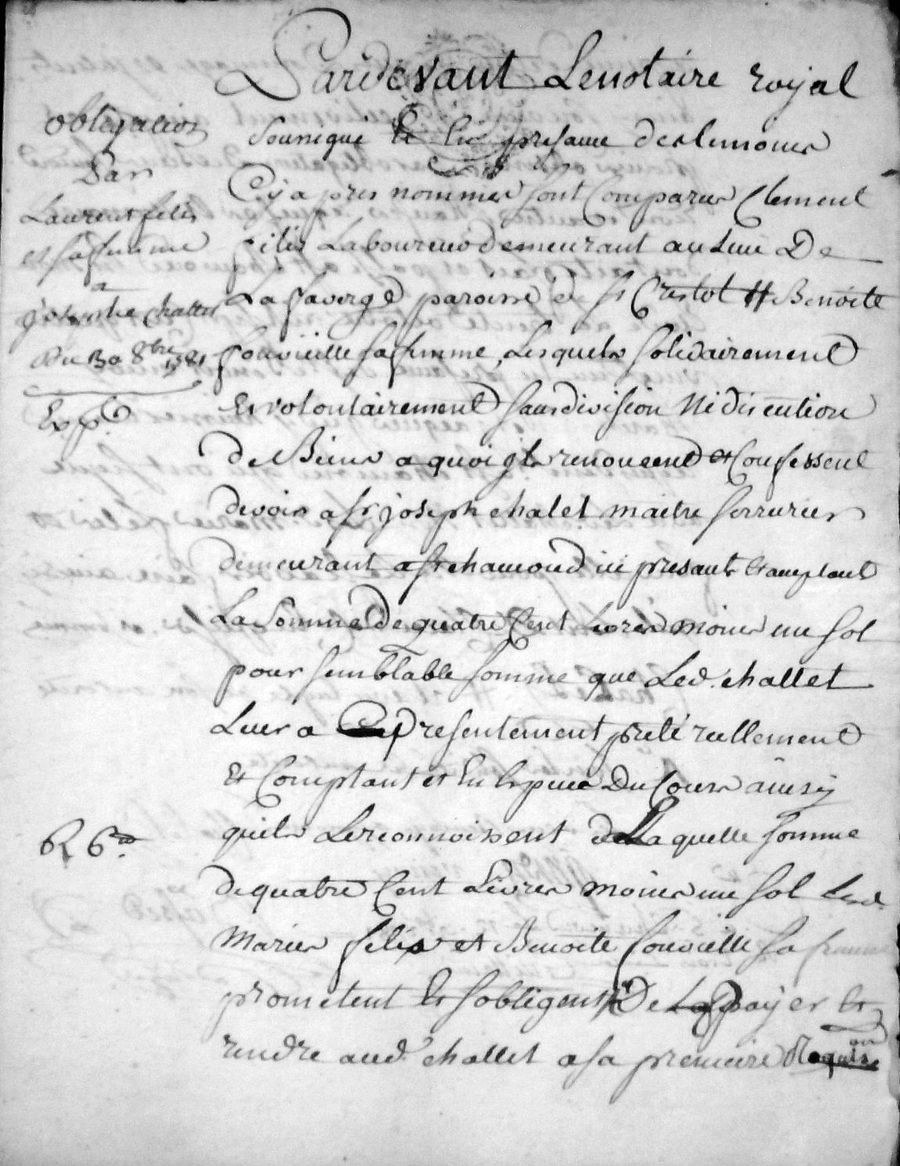 Pardevant Lenotaire royal
obligation
Par
Laurent felix
et sa femme
a
joseph Challet
Du 30 8bre 1781
Exp
6# 6
soussigné & En presance des temoins
Cy apres nommes sont Comparus Clement
felix Laboureur demeurant au Lieu De
La faverge paroisse de St Cristot # Benoite
fouvielle sa femme, Lesquels solidairement
Et volontairement sans division Ni discution
de Biens a quoi ils renoncent et Confessent
devoir a sr joseph chalet maitre serrurier
demeurant a St chamond ici presant & acceptant
La somme de quatre Cent Livres moins un sol
pour semblable somme que Led. challet
Leur a presentement preté reellement
Et Comptant et En Espece Du Cours ainsy
quils Lereconnoissent de Laquelle somme
de quatre Cent Livres moins un sol Led.
Maries felix et Benoite fouvielle sa femme
prometent Et sobligent De La payer &
rendre aud. challet a sa premiere Requis
on